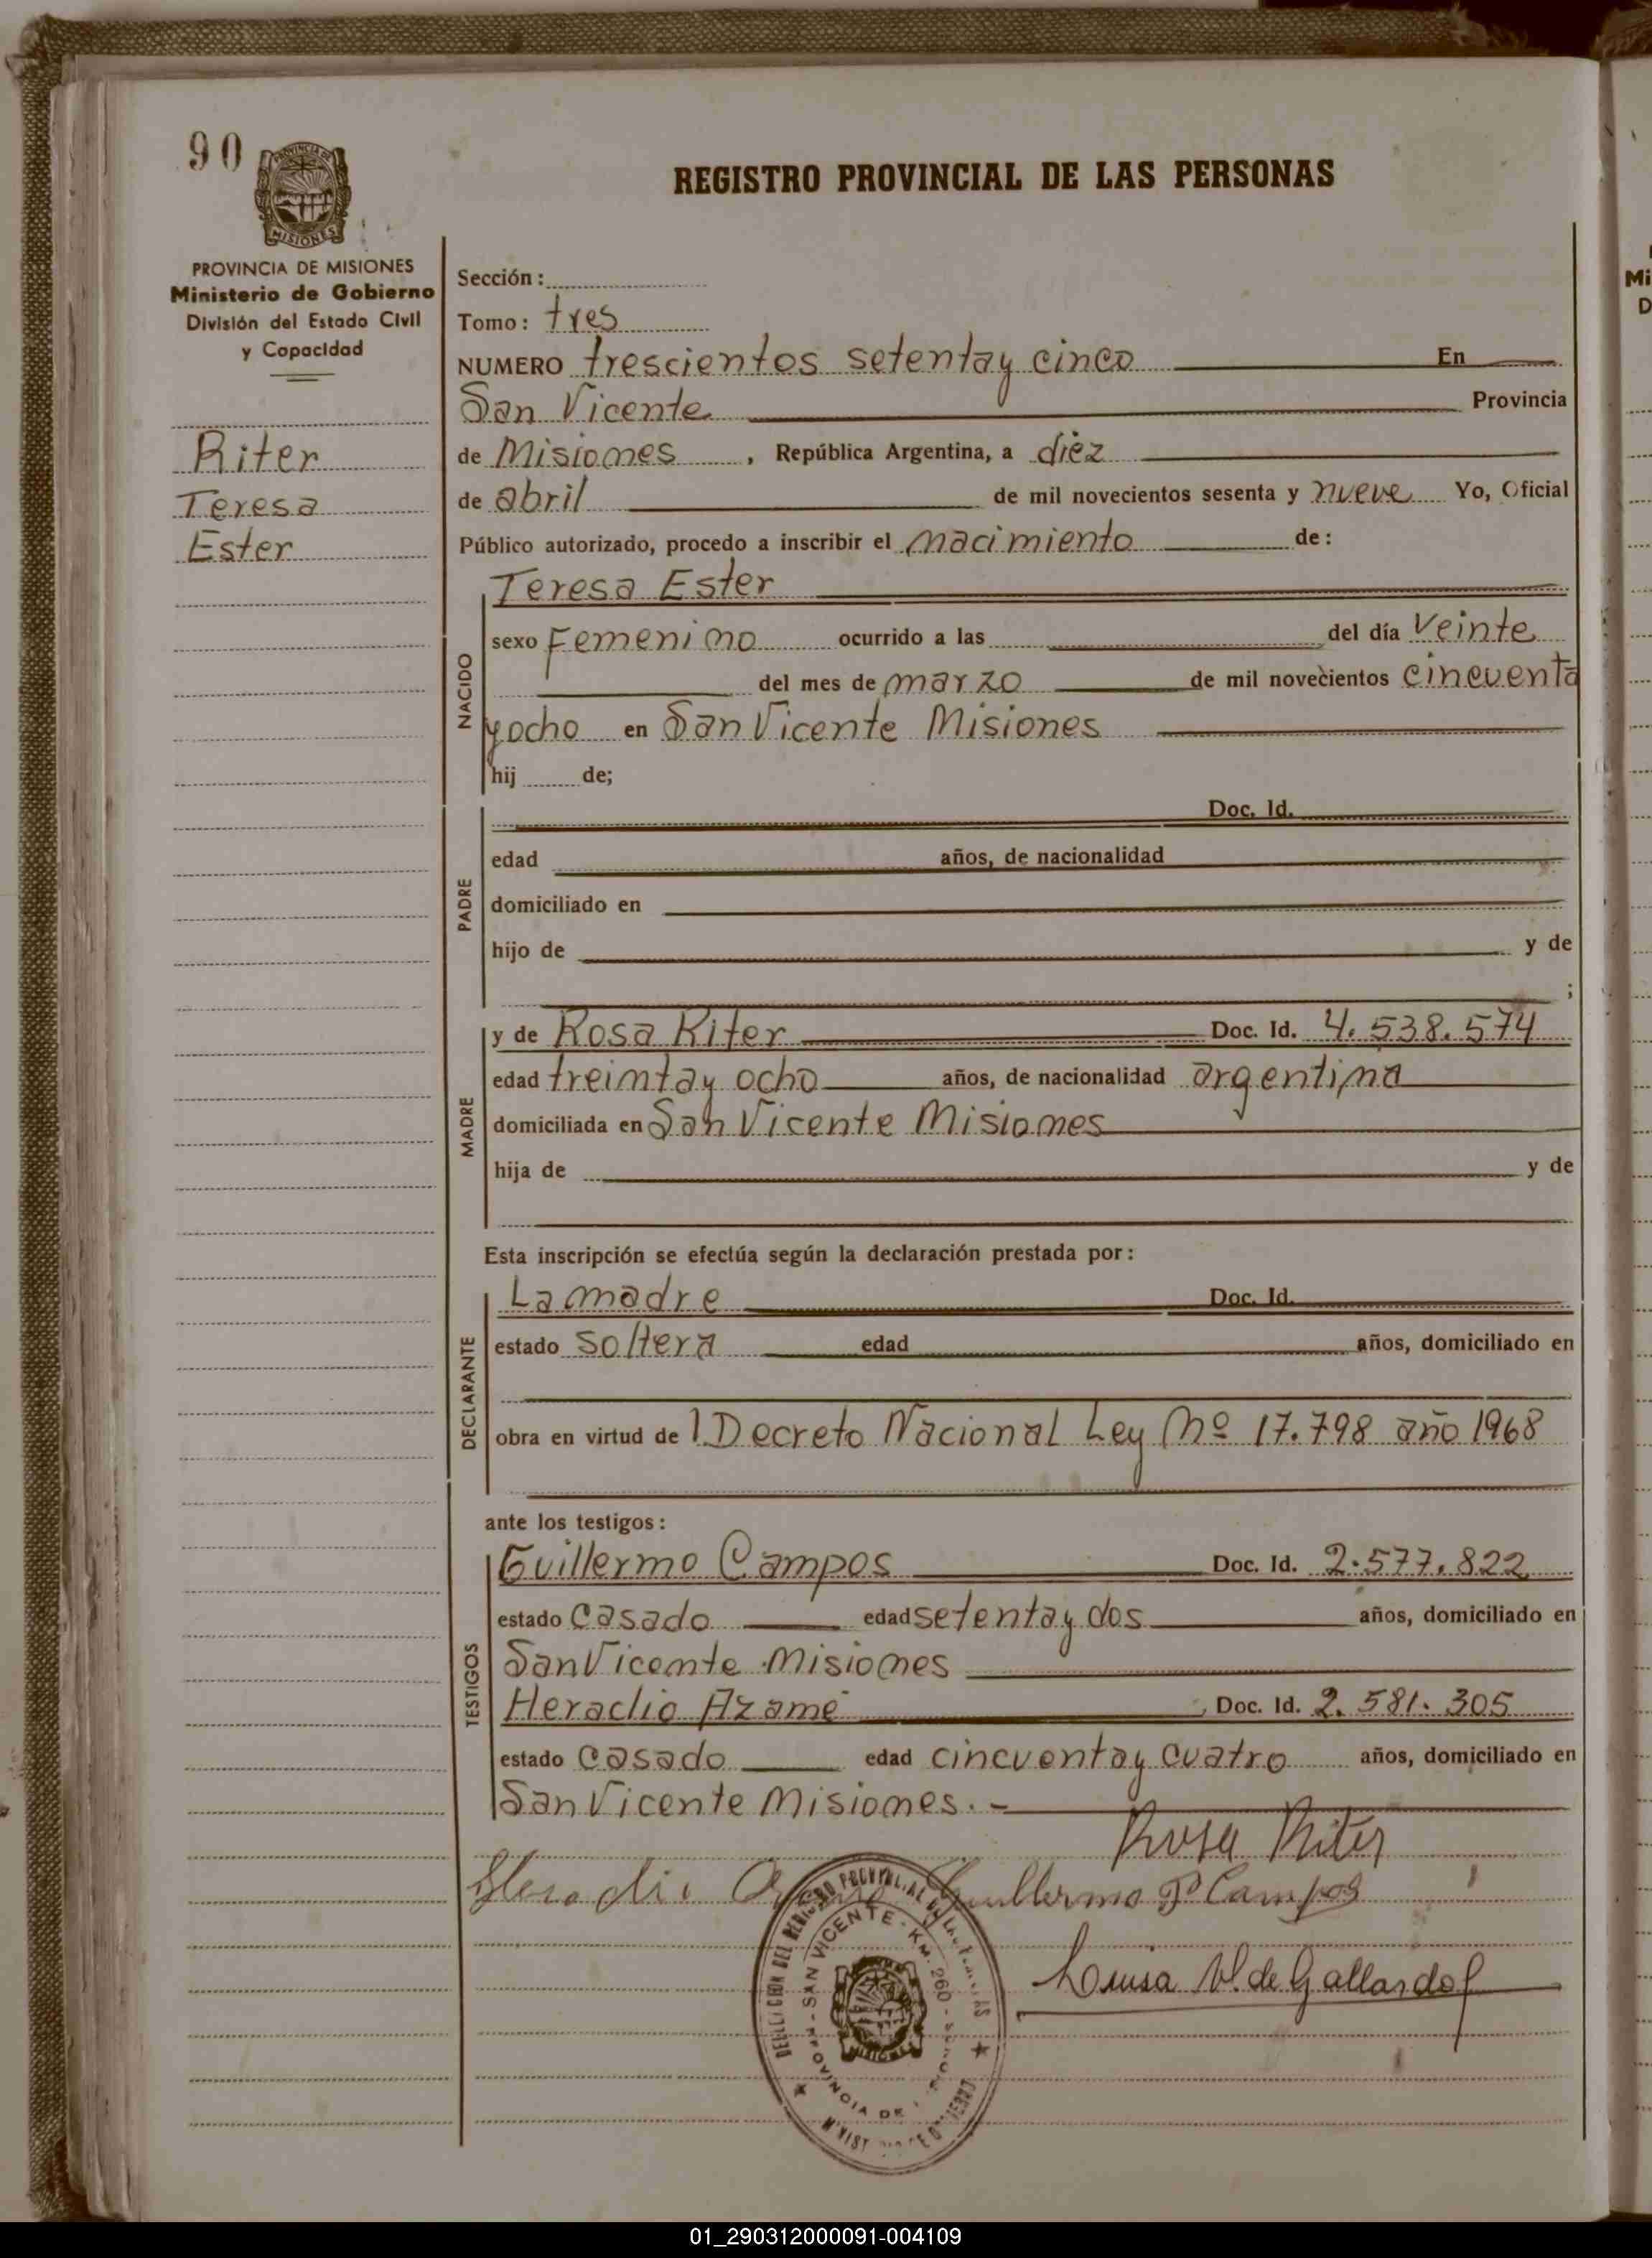 90
PROVINCIA DE MISIONES
PROVINCIA DE MISIONES
Ministerio de Gobierno
División del Estado Civil
y Capacidad
Riter
Teresa
Ester
REGISTRO PROVINCIAL DE LAS PERSONAS
Sección:
Tomo: tres
NUMERO trescientos setenta y cinco En
San Vicente Provincia
de Misiones, República Argentina, a diez
de abril de mil novecientos sesenta y nueve Yo, Oficial
Público autorizado, procedo a inscribir el nacimiento de:
NACIDO
Teresa Ester
sexo Femenino ocurrido a las del día veinte
del mes de marzo de mil novecientos cincuenta
y ocho en San Vicente Misiones
hij de;
PADRE
Doc. Id.
edad años, de nacionalidad
domiciliado en
hijo de y de
;
MADRE
y de Rosa Riter Doc. Id. 4.538.574
edad treinta y ocho años, de nacionalidad argentina
domiciliada en San Vicente Misiones
hija de y de
Esta inscripción se efectúa según la declaración prestada por:
DECLARANTE
La madre Doc. Id.
estado soltera edad años, domiciliado en
obra en virtud de l Decreto Nacional Ley Nº 17.798 año 1968
ante los testigos:
TESTIGOS
Guillermo Campos Doc. Id. 2.577.822
estado casado edad setenta y dos años, domiciliado en
San Vicente Misiones
Heraclio Azame Doc. Id. 2.581.305
estado casado edad cincuenta y cuatro años, domiciliado en
San Vicente Misiones.-
Rosa Riter
Guillermo P Campos
Luisa V. de Gallardo
SAN VICENTE - KM. 260
PROVINCIA DE
01_290312000091-004109